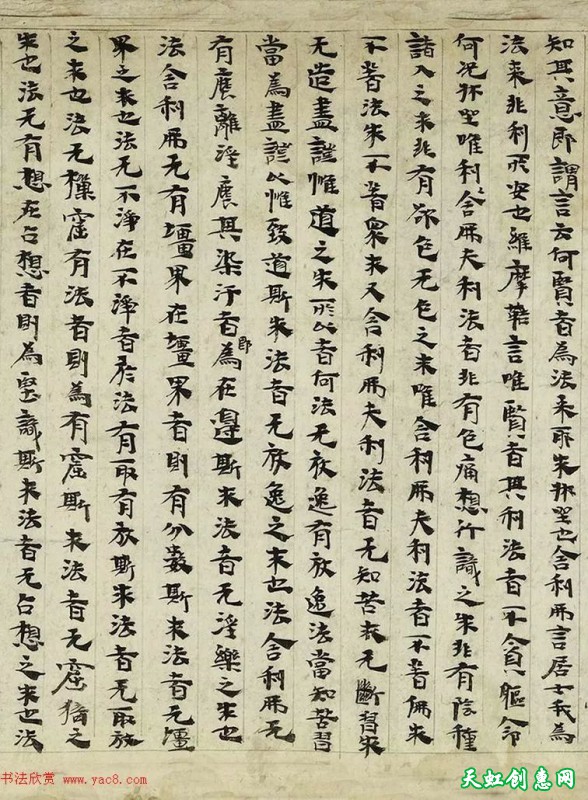 知其意即謂言云何賢者為法來耶求床坐也舍利弗言居士我為
法來非利所安也維摩詰言唯賢者其利法者不貪軀命
何況床坐唯利舍弗夫利法者非有色痛想行識之求非有陰種
諸入之求非有欲色无色之求唯舍利弗夫利法者不著佛求
不著法求不著衆求又舍利弗夫利法者无知苦求无斷習求
无造盡證惟道之求所以者何法无放逸有放逸法當知苦習
當為盡證以惟致道斯求法者无放逸之求也法舍利弗无
有塵離婬塵其染汙者即為在邊斯求法者无婬樂之求也
法舍利弗无有壃界在壃界者則有分數斯求法者无壃
界之求也法无不淨在不淨者於法有取有放斯求法者无取放
之求也法无樔窟有法者則為有窟斯求法者无窟猗之
求也法无有想在占想者則為堅識斯求法者无占想之求也法
书法欣赏 www.yac8.com
天虹创惠网